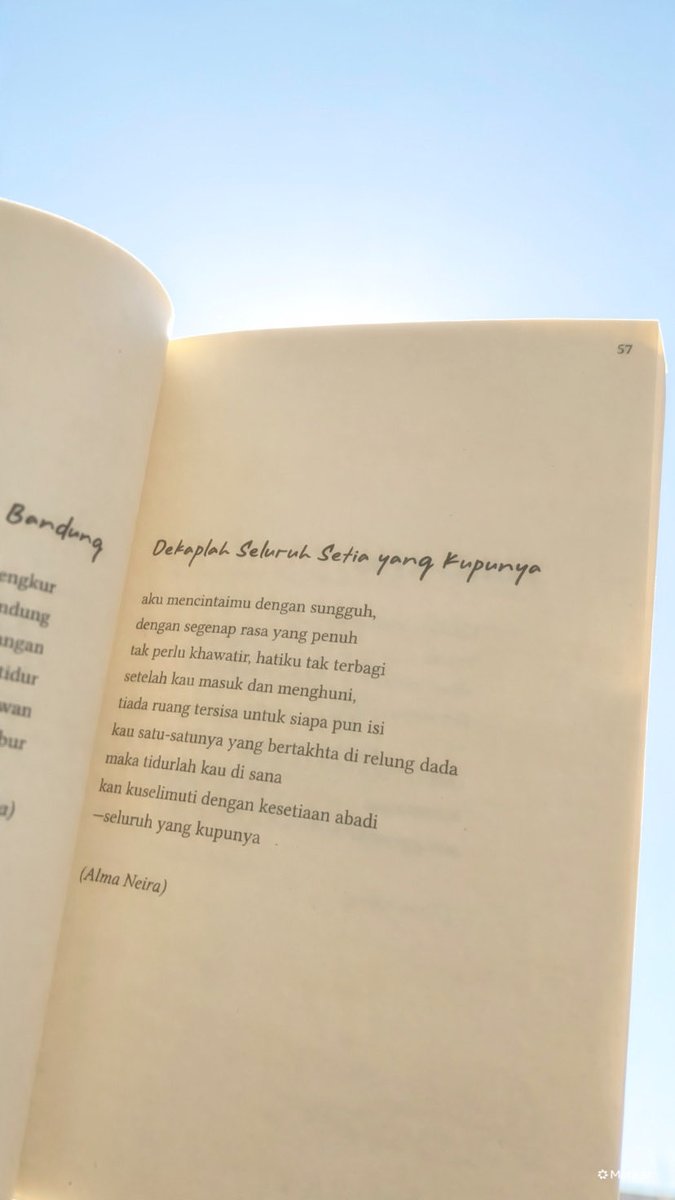 Bandung
engkur
ndung
angan
tidur
wan
bur
a)
57
Dekaplah Seluruh Setia yang Kupunya
aku mencintaimu dengan sungguh,
dengan segenap rasa yang penuh
tak perlu khawatir, hatiku tak terbagi
setelah kau masuk dan menghuni,
tiada ruang tersisa untuk siapa pun isi
kau satu-satunya yang bertakhta di relung dada
maka tidurlah kau di sana
kan kuselimuti dengan kesetiaan abadi
—seluruh yang kupunya
(Alma Neira)